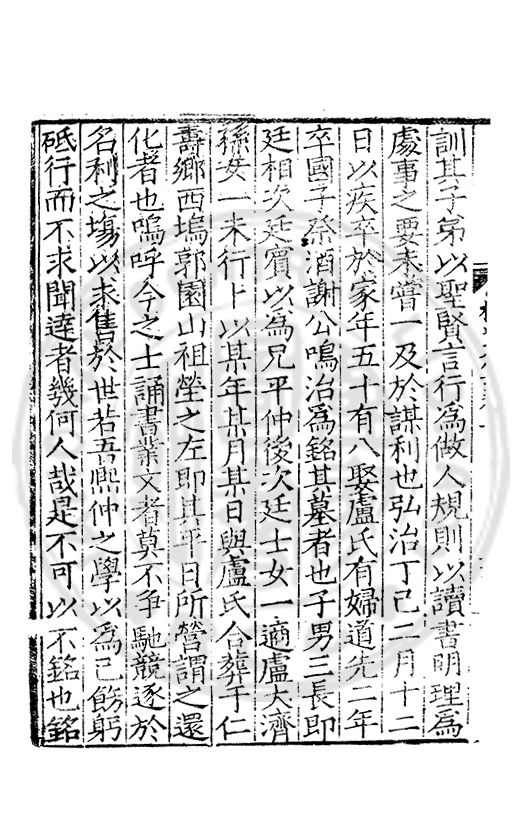 訓其子弟以聖賢言行爲做人規則以讀書明理爲
處事之要未嘗一及於謀利也弘治丁巳二月十二
日以疾卒於家年五十有八娶盧氏有婦道先二年
卒國子祭酒謝公鳴治爲銘其墓者也子男三長即
廷相次廷賓以爲兄平仲後次廷士女一適盧大濟
孫女一未行卜以某年某月某日與盧氏合葬于仁
壽鄉西塢郭園山祖塋之左即其平日所營謂之還
化者也嗚呼今之士誦書業文者莫不爭馳競逐於
名利之塲以求售於世若吾熙仲之學以爲己飭躬
砥行而不求聞達者幾何人哉是不可以不銘也銘